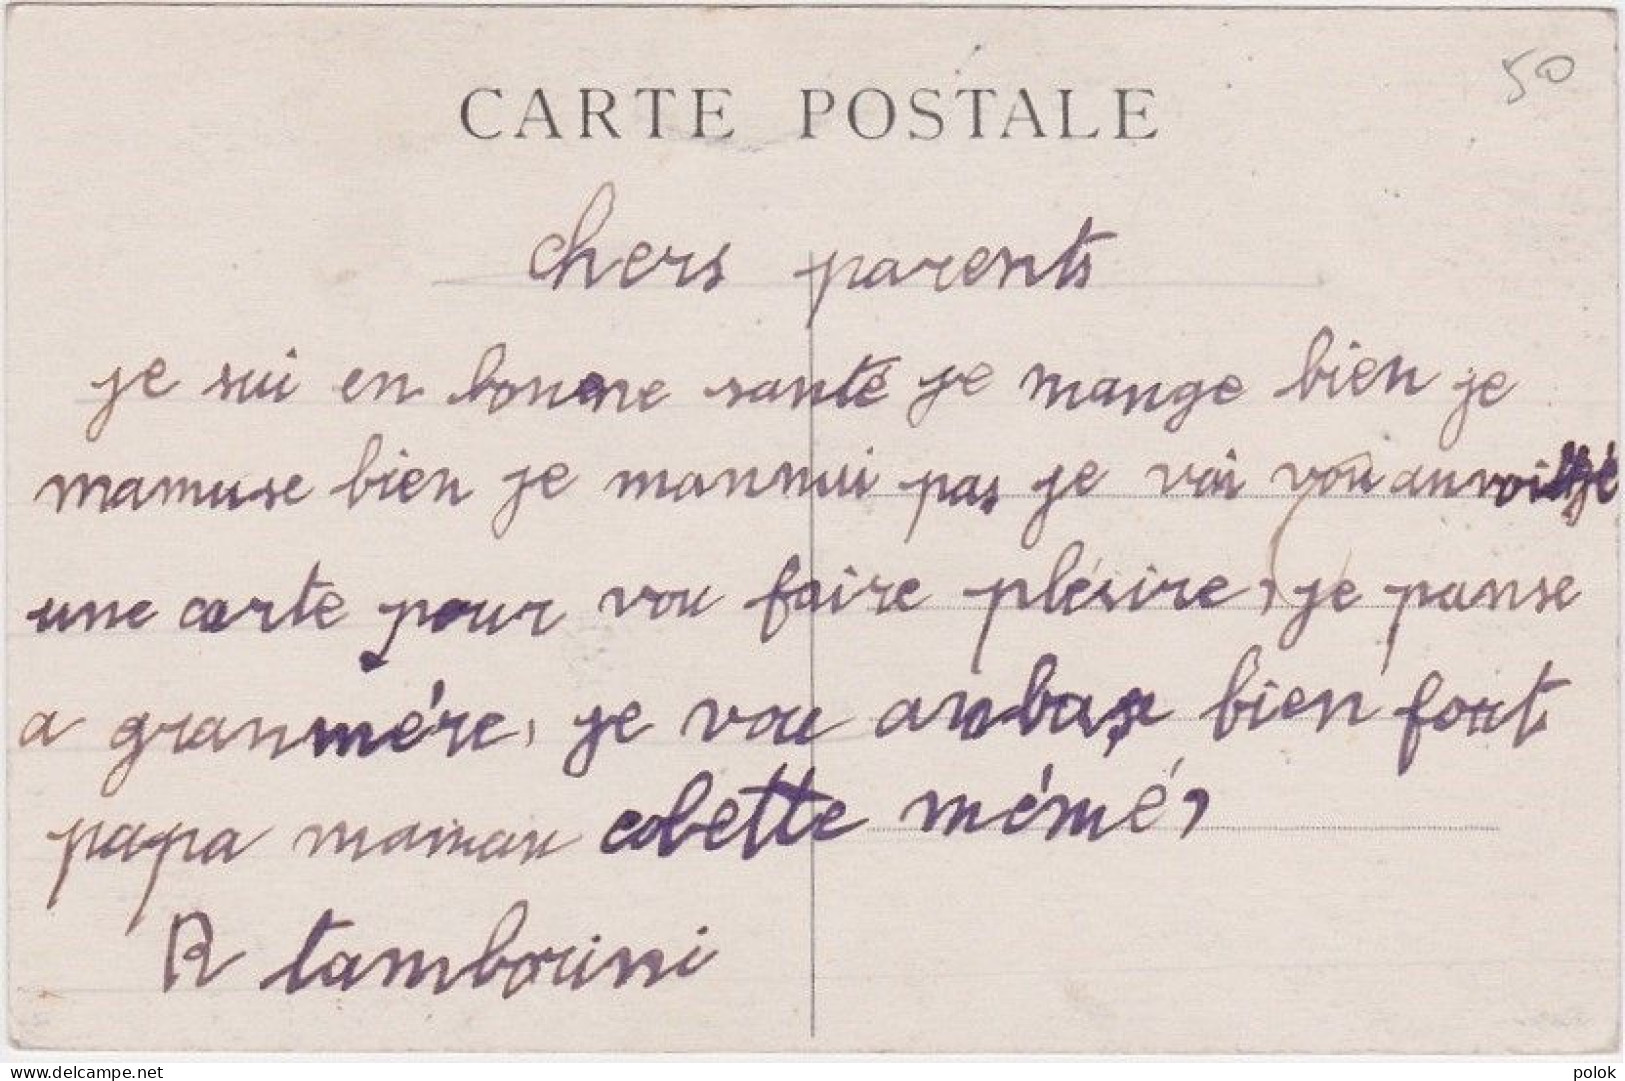 50
CARTE POSTALE
chers parents
je sui en bonne santé je mange bien je
mamuse bien je mannui pas je vai vou
une carte pour vou faire plésire, je panse
a granmére, je vou anbase bien fort
papa maman colette mémé,
R tamborini
delcampe.net
polok